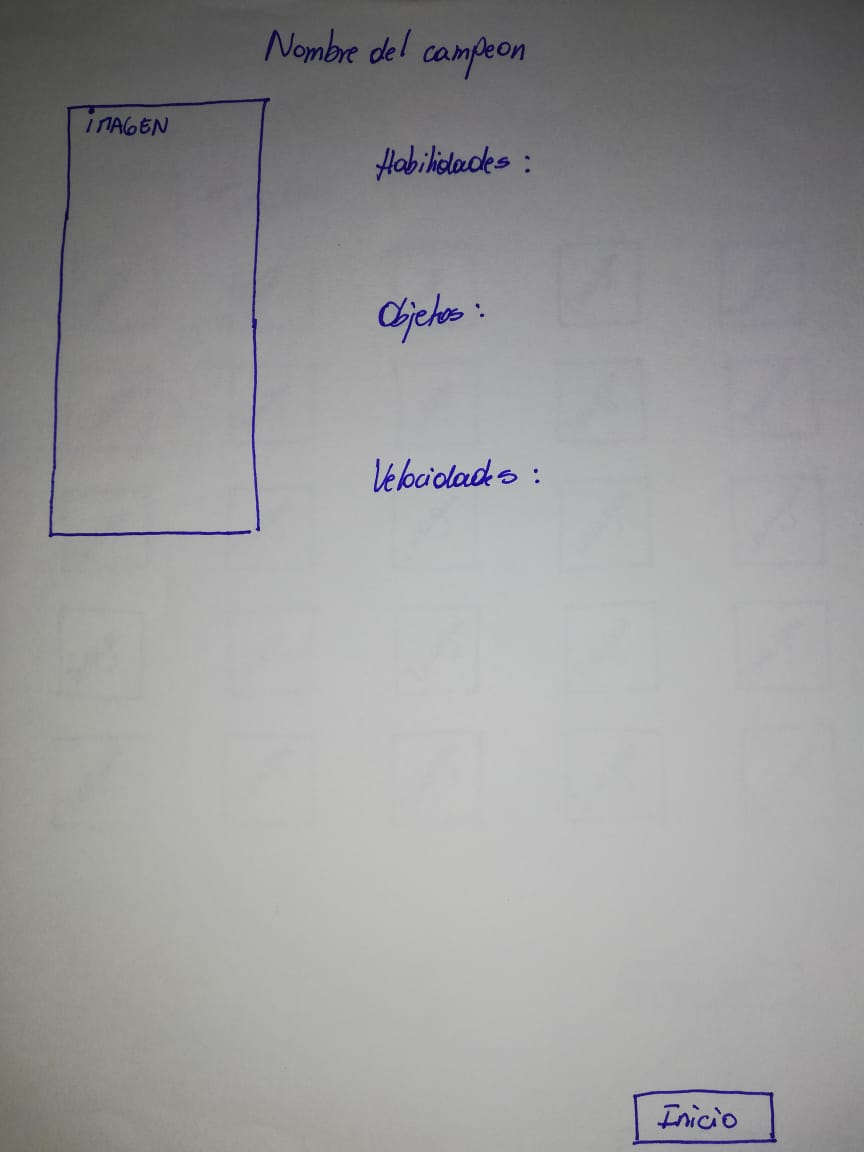 Nombre del campeon
iMAGEN
Habilidades :
Objetos :
Velocidades :
Inicio